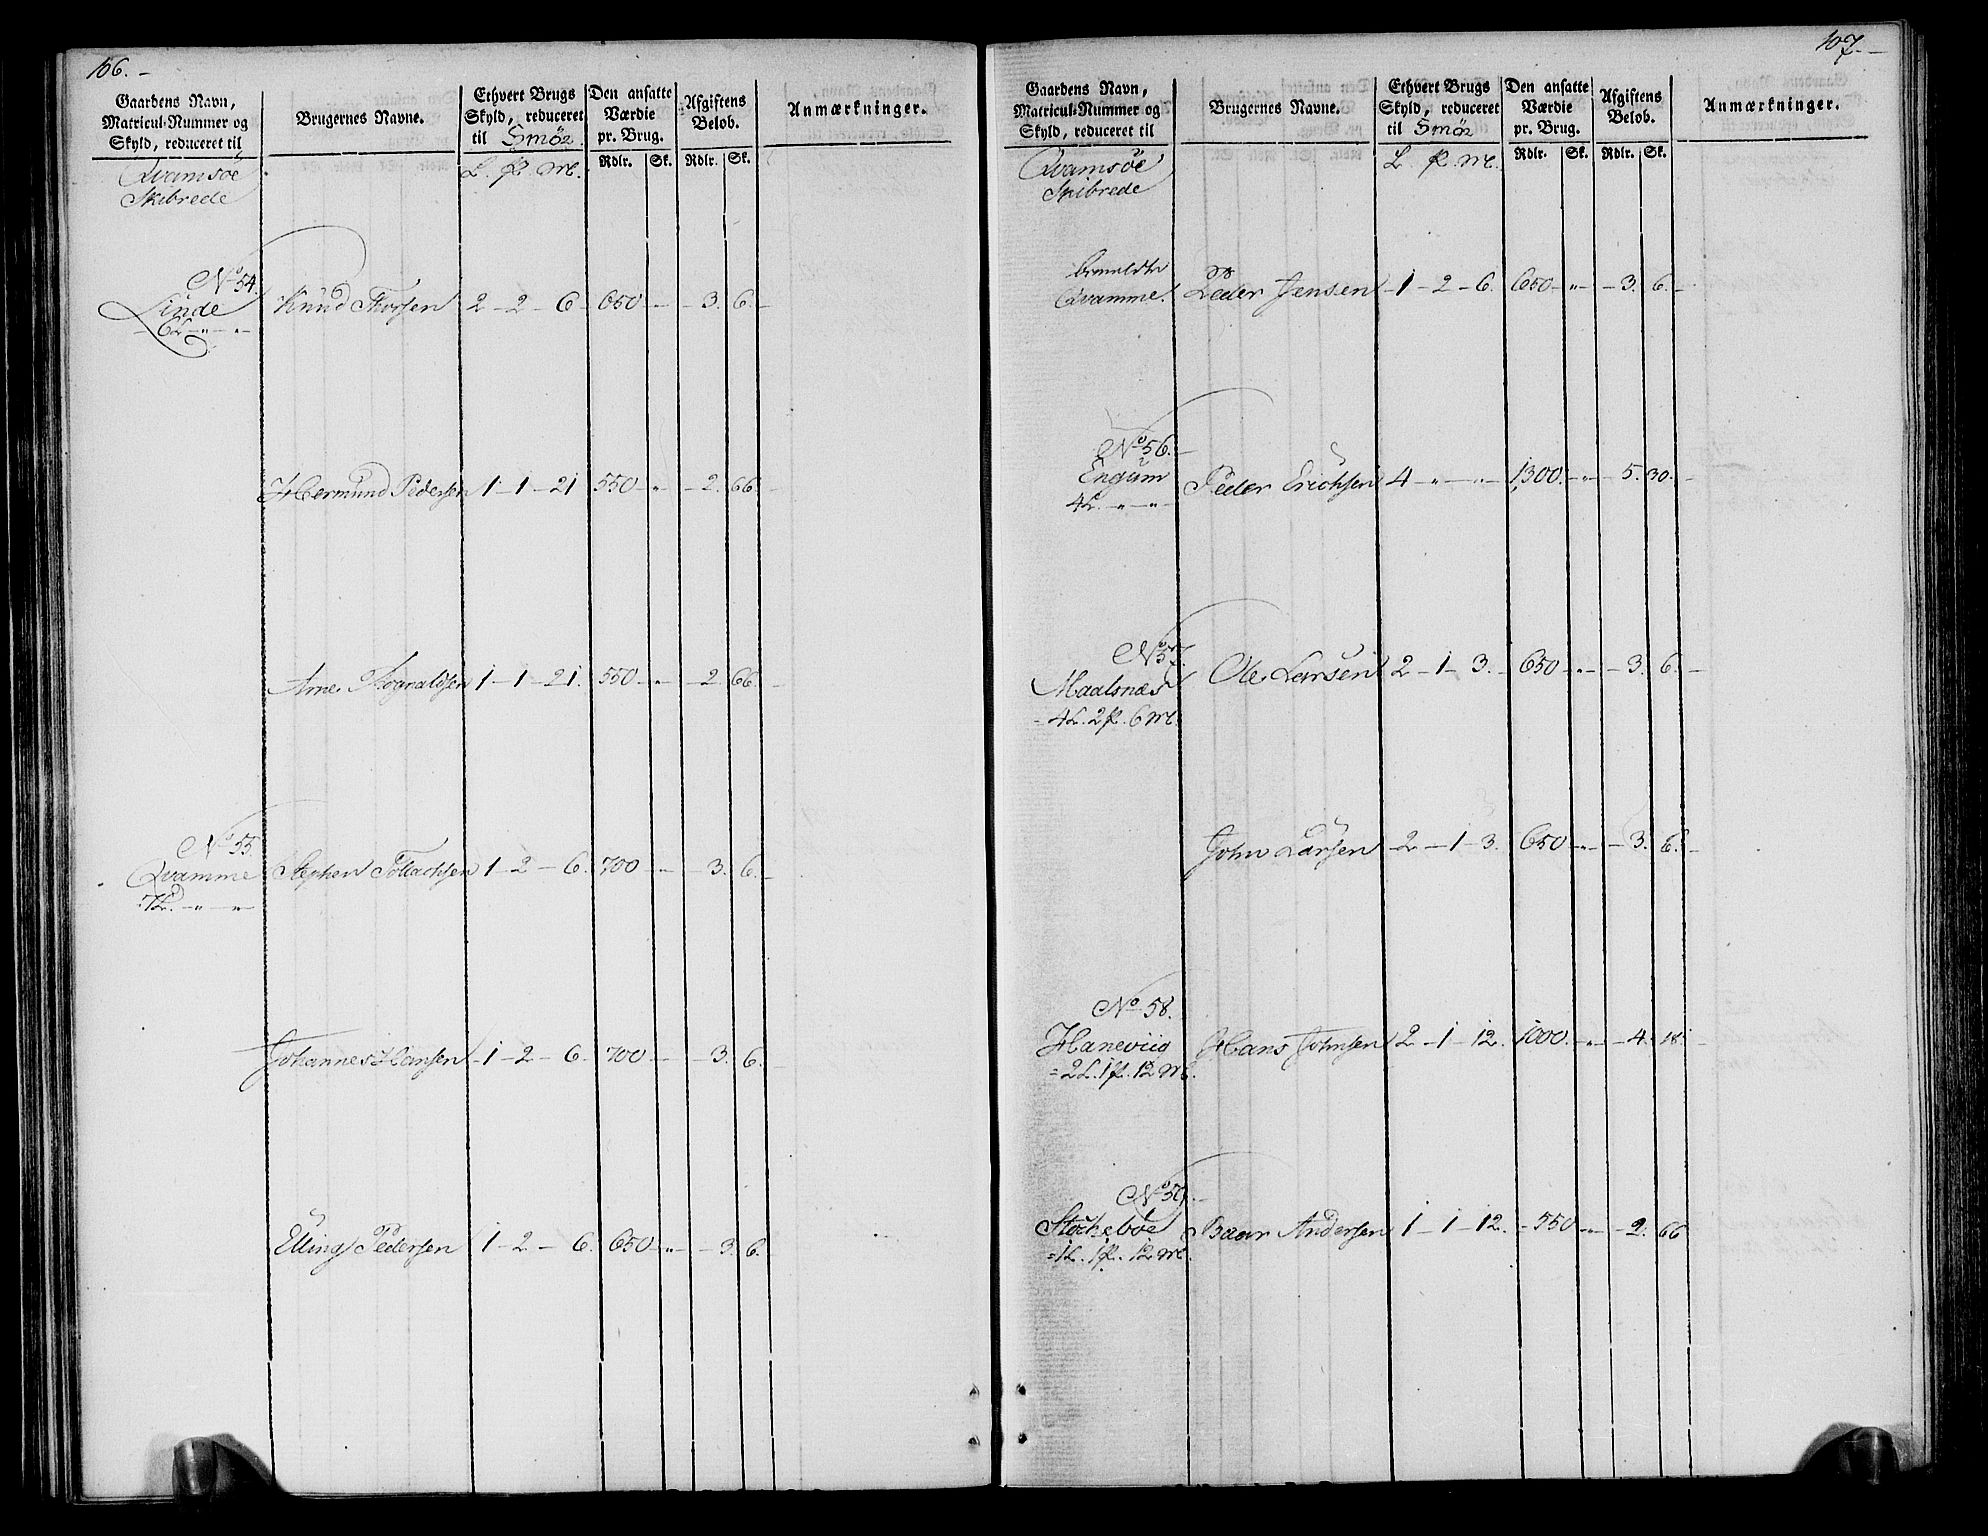 106. –
Gaardens Navn,
Matricul-Nummer og
Skyld, reduceret til
Brugernes Navne.
Ethvert Brugs
Skyld, reduceret
til Smör
Den ansatte
Værdie
pr. Brug.
Afgiftens
Belob.
Anmærkninger.
Rdlr. Sk. Rdlr. Sk.
Qvamsöe
Skibrede
L. p M.
No 54.
Linde
6L. " "
Knud 2 – 2 – 6 650 – " – 3. 6. –
Hermund Pedersen 1 – 1 – 21 550 – " – 2. 66. –
Arne Rognaldsen 1 – 1 – 21. 550 – " – 2. 66. –
No 55.
Qvamme
7L. – " – "
Stephen Tollachsen 1 – 2 – 6. 700 – " – 3. 6. –
Johannes Hansen – 1 – 2 – 6. 700 – " – 3. 6. –
Elling Pedersen 1 – 2 – 6. 650 – " – 3. 6. –
107. –
Gaardens Navn,
Matricul-Nummer og
Skyld, reduceret til
Brugernes Navne.
Ethvert Brugs
Skyld, reduceret
til Smör
Den ansatte
Værdie
pr. Brug.
Afgiftens
Belob.
Anmærkninger.
Rdlr. Sk. Rdlr. Sk.
Qvamsöe
Skibrede
L. p. M.
bemeldte
Qvamme.
Peder Jensen – 1 – 2 – 6. 650 – " – 3. 6. –
No 56. –
Engum
4L. – " – "
Peder Erichsen 4 – " – " 1300. – " – 5. 30. –
No 57.
Maalsnæs
= 4L. 2p. 6M.
Ole Larsen 2 – 1 – 3. – 650 – " – 3. 6. –
John Larsen – 2 – 1 – 3. 650 – " – 3. 6. –
No 58.
Haneviig
= 2L. 1p. 12M.
Hans Johnsen 2 – 1 – 12. 1000. – " – 4. 18
No 59. –
Stockeböe
= 1L. 1p. 12M.
Baar Andersen 1 – 1 – 12. – 550 – " – 2. 66